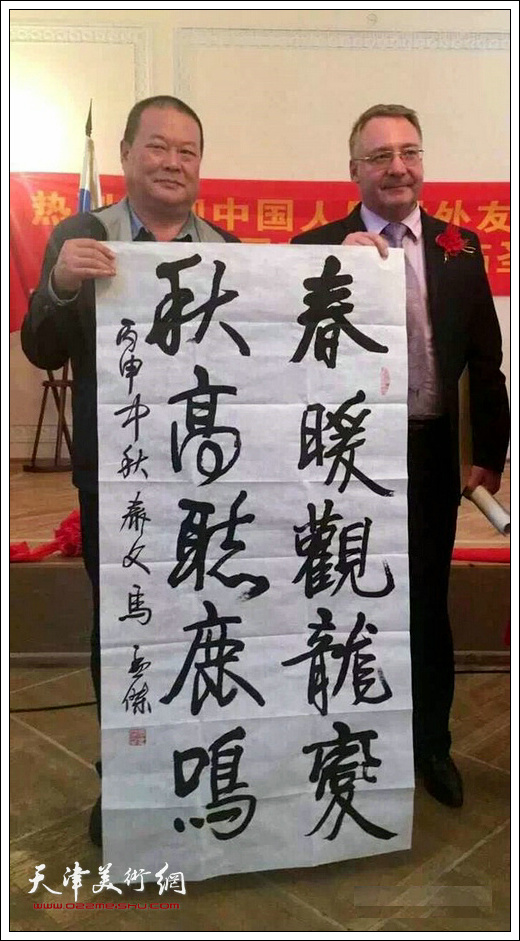 热
中国人
外友
春暖觀龍變
秋高聽鹿鳴
丙申中秋
馬孟傑
天津美術網
www.022meishu.com